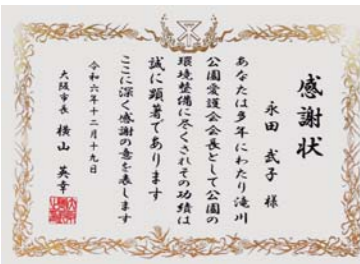 感謝状
永田 武子 様
あなたは多年にわたり滝川
公園愛護会会長として公園の
環境整備に尽くされその功績は
誠に顕著であります
ここに深く感謝の意を表します
令和六年十二月十九日
大阪市長 横山 英幸